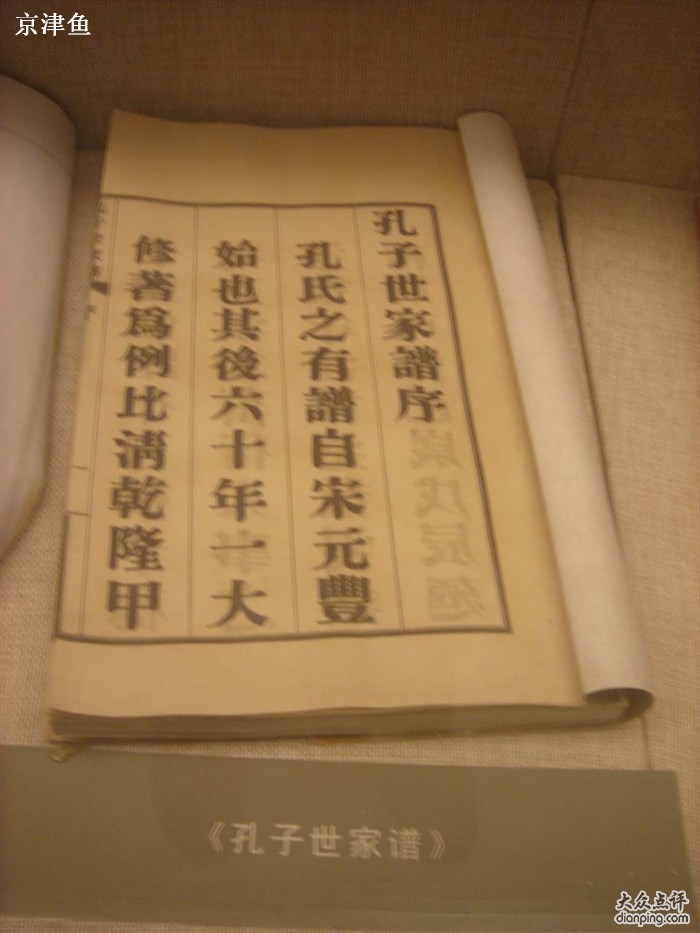 京津鱼
孔子世家譜序
孔氏之有譜自宋元豐
始也其後六十年一大
修著爲例比清乾隆甲
《孔子世家谱》
大众点评
dianping.com